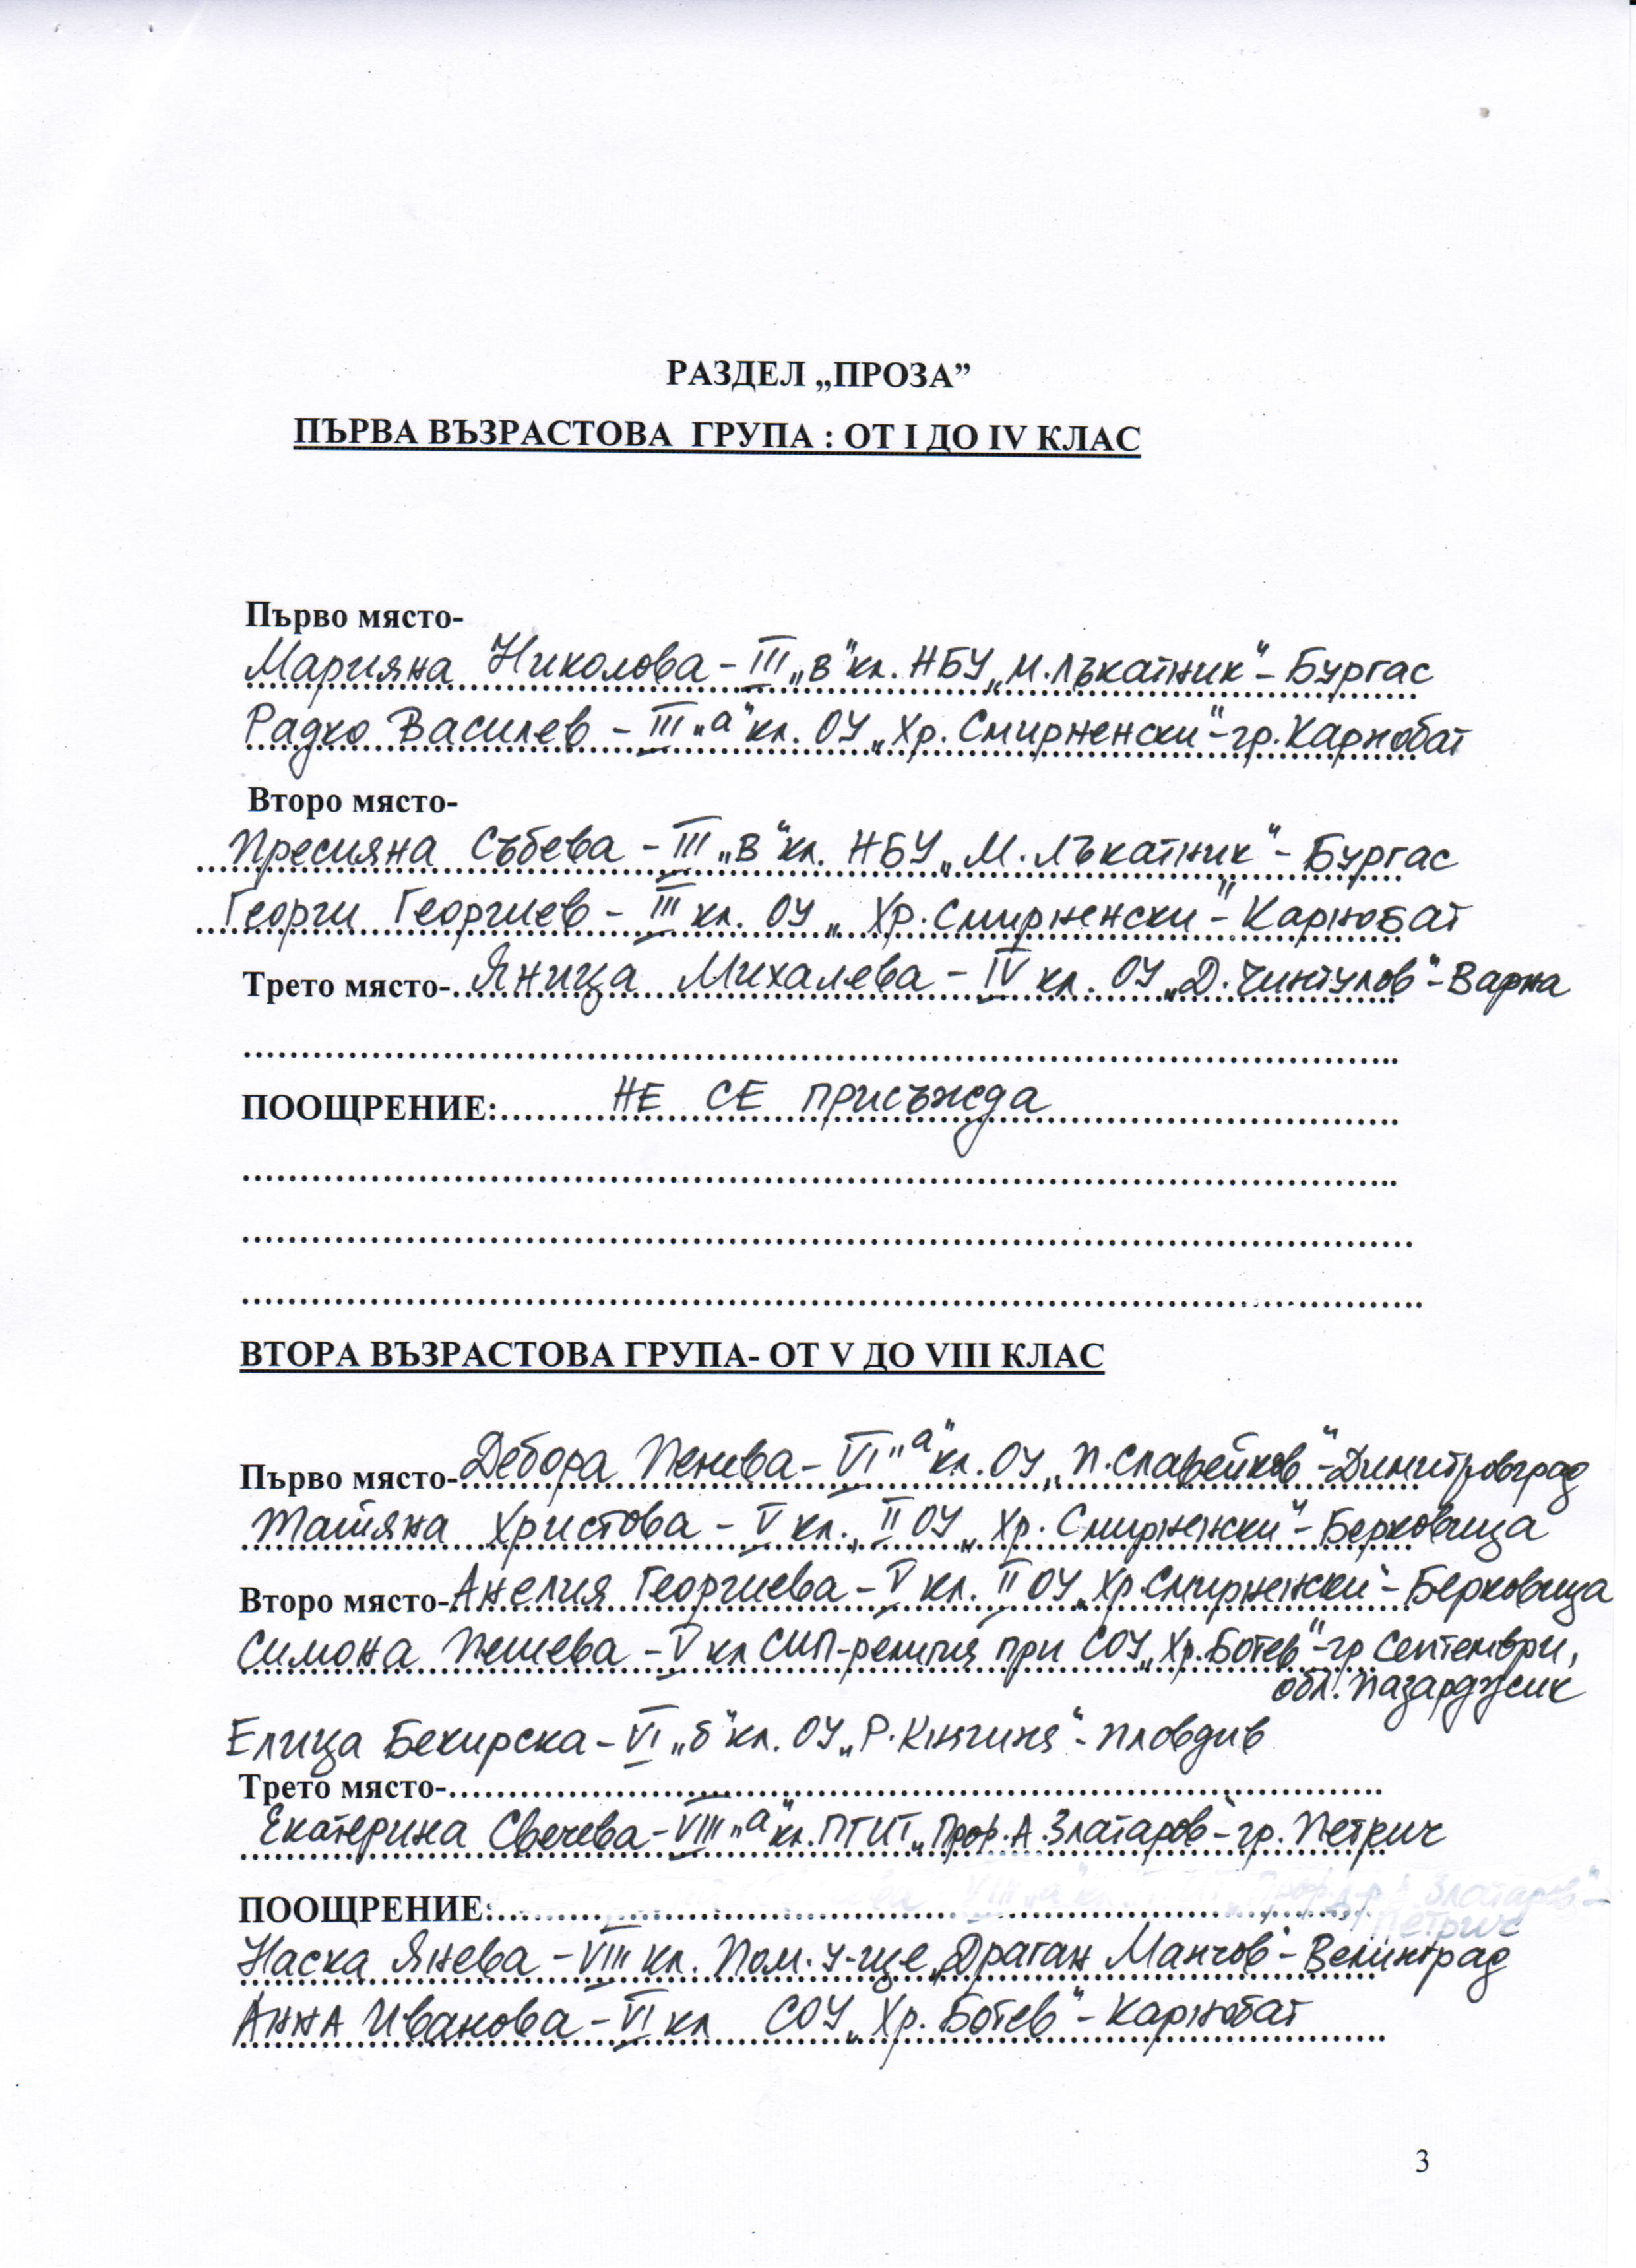 РАЗДЕЛ „ПРОЗА”
ПЪРВА ВЪЗРАСТОВА ГРУПА : ОТ I ДО IV КЛАС
Първо място-
Марияна Николова – III „в“ кл. НБУ „М. Лъкатник“ – Бургас
Радко Василев – III „а“ кл. ОУ „Хр. Смирненски“ – гр. Карнобат
Второ място-
Пресияна Събева – III „в“ кл. НБУ „М. Лъкатник“ – Бургас
Георги Георгиев – III кл. ОУ „Хр. Смирненски“ – Карнобат
Трето място- Яница Михалева – IV кл. ОУ „Д. Чинтулов“ – Варна
ПООЩРЕНИЕ: НЕ СЕ присъжда
ВТОРА ВЪЗРАСТОВА ГРУПА- ОТ V ДО VIII КЛАС
Първо място- Дебора Пенева – VI „а“ кл. ОУ „П. Славейков“ – Димитровград
Татяна Христова – V кл., II ОУ „Хр. Смирненски“ – Берковица
Второ място- Анелия Георгиева – V кл. II ОУ „Хр. Смирненски“ – Берковица
Симона Пешева – V кл СИП-религия при СОУ „Хр. Ботев“ – гр Септември,
обл. Пазарджик
Елица Бекирска – VI „б“ кл. ОУ „Р. Княгиня“ – Пловдив
Трето място-
Екатерина Свечева – VIII „а“ кл. ПГИТ „Проф. А. Златаров“ – гр. Петрич
ПООЩРЕНИЕ:
Наска Янева – VIII кл. Пом. у-ще „Драган Манчов“ – Велинград
Анна Иванова – VI кл СОУ „Хр. Ботев“ – Карнобат
3